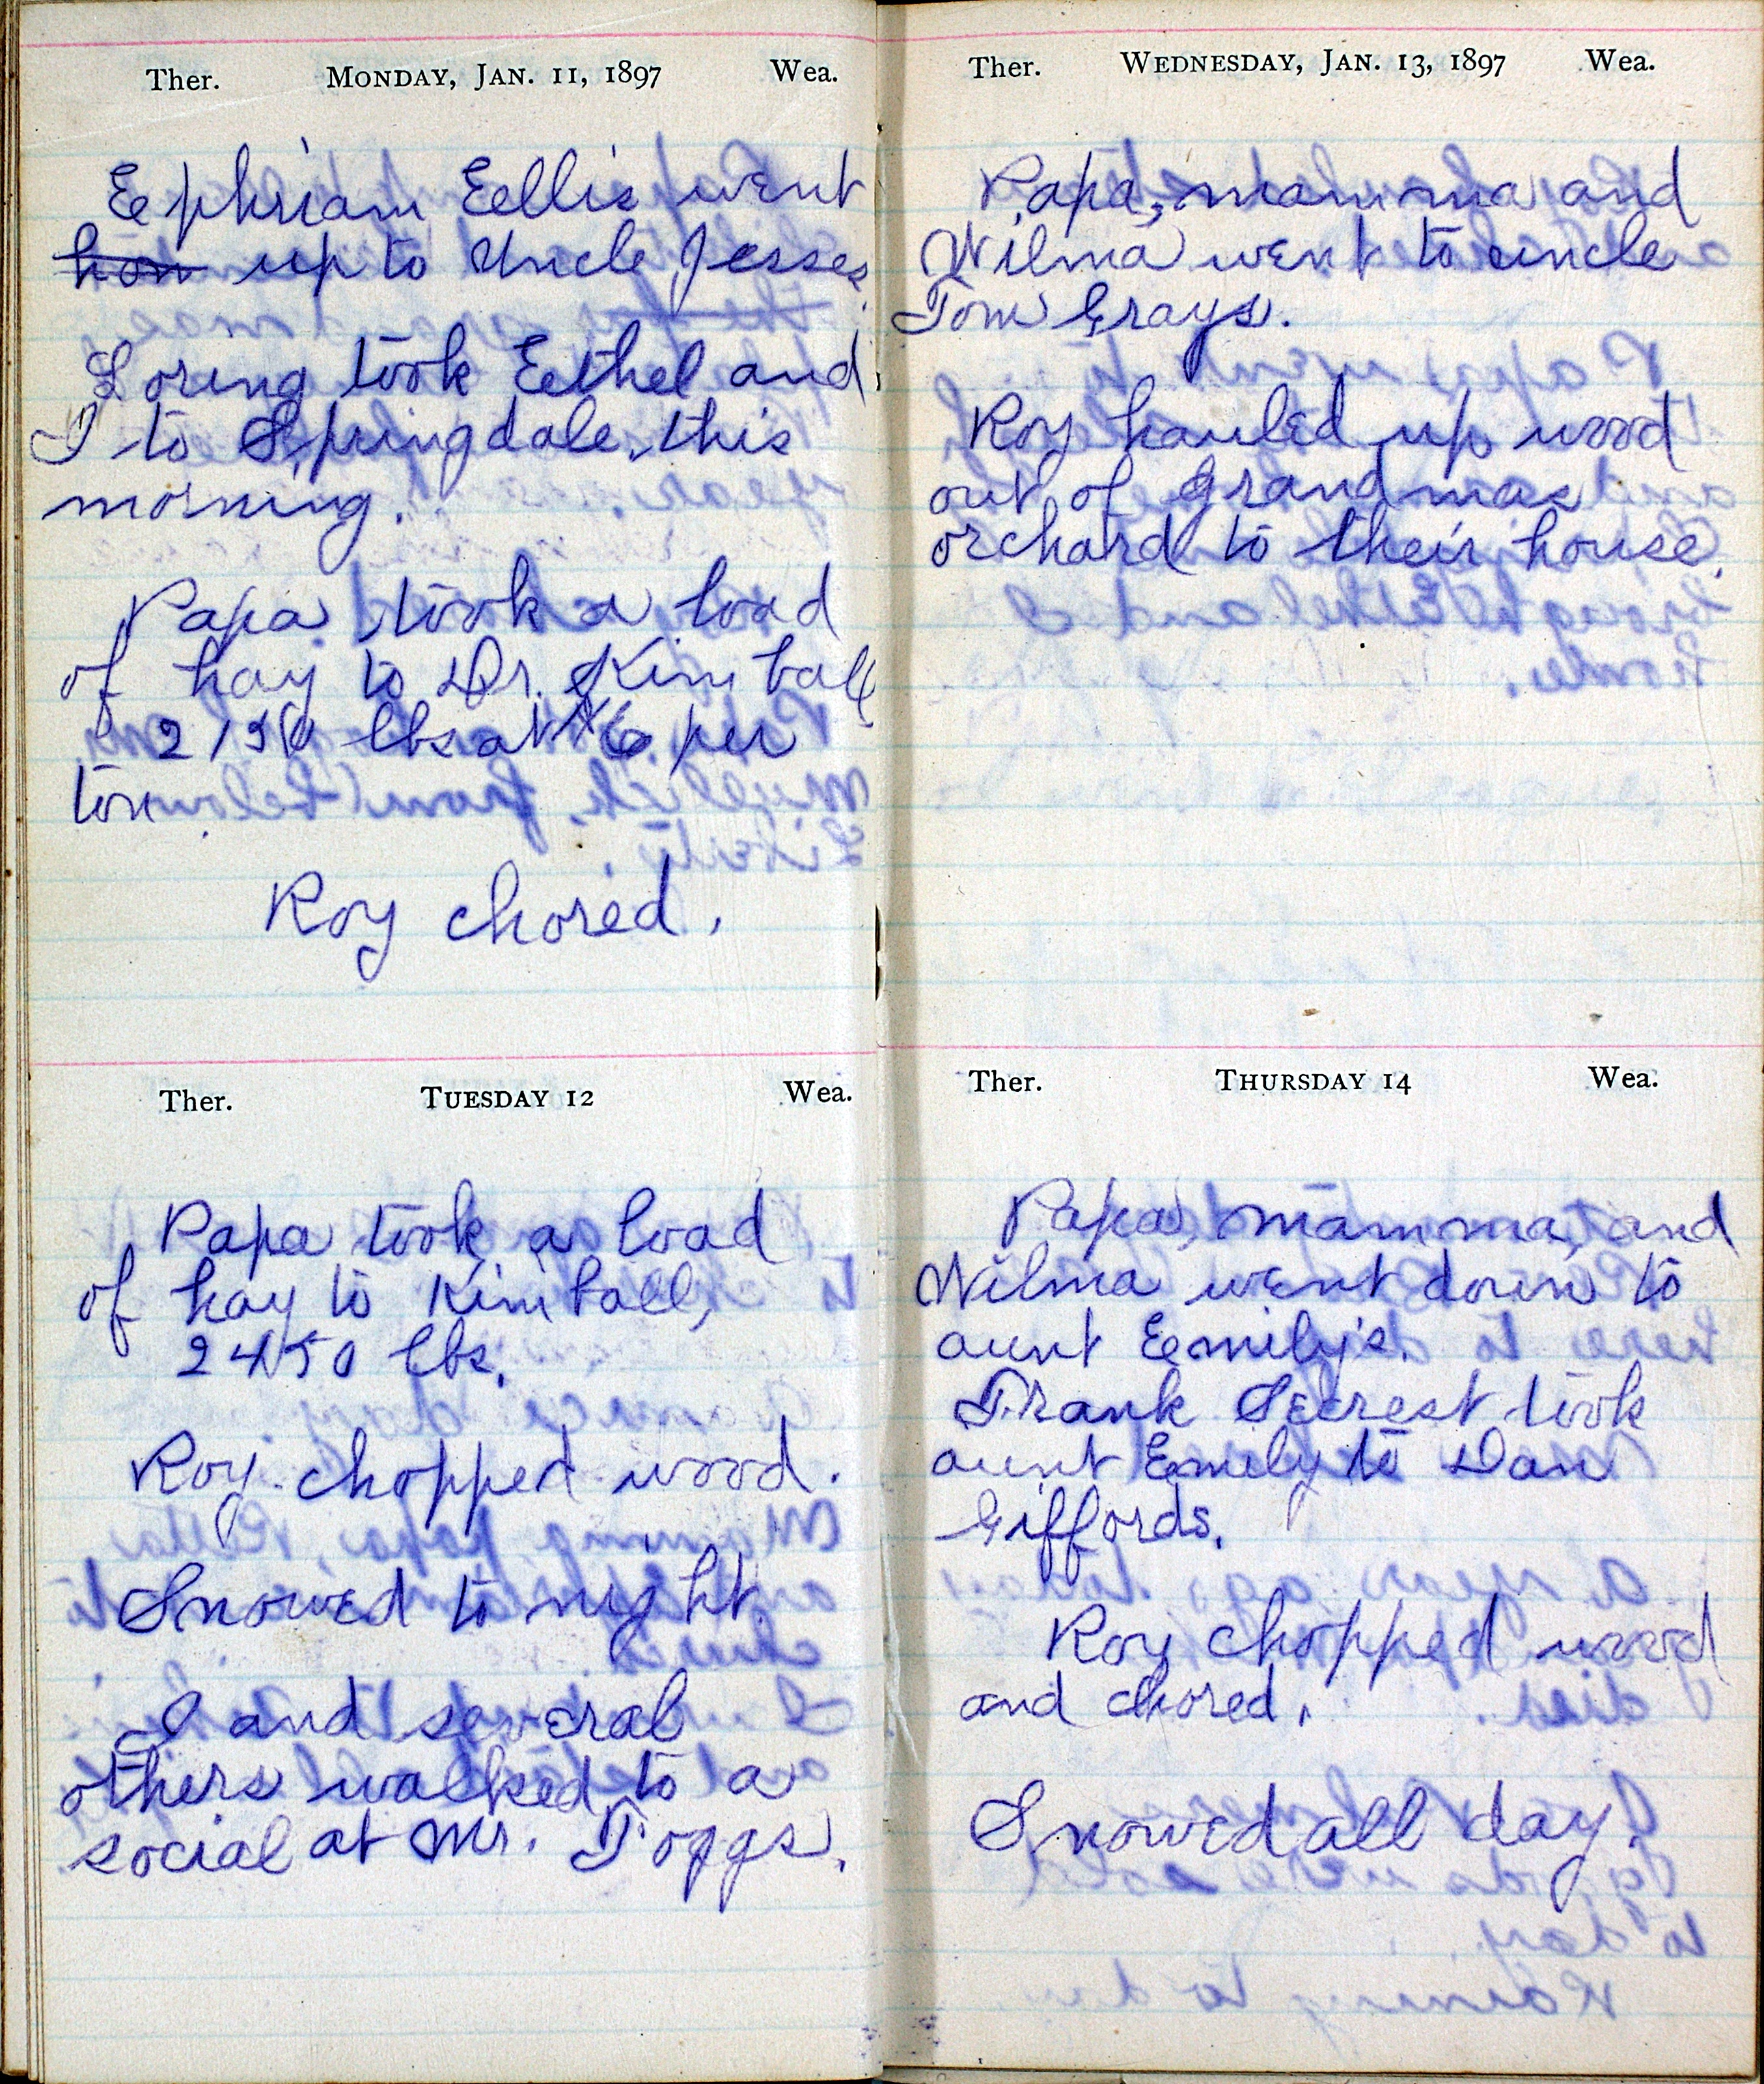 Ther. MONDAY, JAN. 11, 1897 Wea.
Ephriam Ellis went
hom up to Uncle Jesses.
Loring took Ethel and
I to Springdale this
morning.
Papa took a load
of hay to Dr. Kimball
lbs at $6 per
ton.
Roy chored.
Ther. TUESDAY 12 Wea.
Papa took a load
of hay to Kimball,
2450 lbs.
Roy chopped wood.
Snowed to night.
I and several
others walked to a
social at Mr. Foggs.
Ther. WEDNESDAY, JAN. 13, 1897 Wea.
Papa, mamma and
Wilma went to uncle
Tom Grays.
Roy hauled up wood
out of Grandmas
orchard to their house.
Ther. THURSDAY 14 Wea.
Papa, mamma, and
Wilma went down to
aunt Emily's.
Frank Secrest took
aunt Emily to Dan
Giffords.
Roy chopped wood
and chored.
Snowed all day.